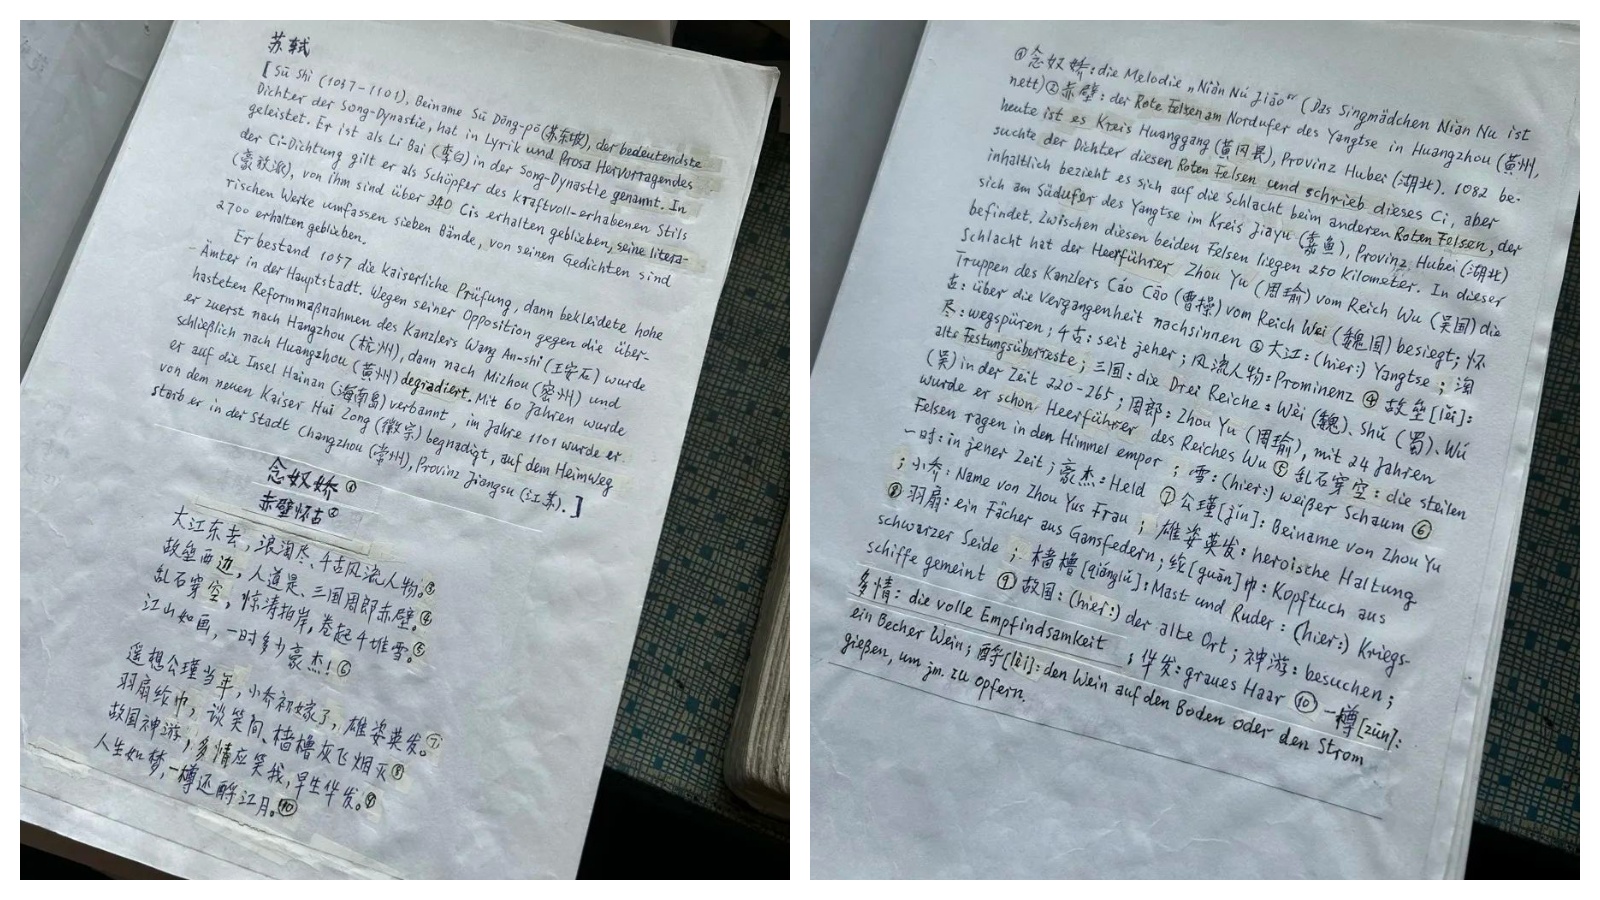 苏轼
[Sū Shì (1037-1101), Beiname Sū Dōng-pō (苏东坡), der bedeutendste
Dichter der Song-Dynastie, hat in Lyrik und Prosa Hervorragendes
geleistet. Er ist als Li Bai (李白) in der Song-Dynastie genannt. In
der Ci-Dichtung gilt er als Schöpfer des kraftvoll-erhabenen Stils
(豪放派), von ihm sind über 340 Cis erhalten geblieben, seine litera-
rischen Werke umfassen sieben Bände, von seinen Gedichten sind
2700 erhalten geblieben.
Er bestand 1057 die kaiserliche Prüfung, dann bekleidete hohe
Ämter in der Hauptstadt. Wegen seiner Opposition gegen die über-
hasteten Reformmaßnahmen des Kanzlers Wang An-shi (王安石) wurde
er zuerst nach Hangzhou (杭州), dann nach Mizhou (密州) und
schließlich nach Huangzhou (黄州) degradiert. Mit 60 Jahren wurde
er auf die Insel Hainan (海南島) verbannt, im Jahre 1101 wurde er
von dem neuen Kaiser Hui Zong (徽宗) begnadigt, auf dem Heimweg
starb er in der Stadt Changzhou (常州), Provinz Jiangsu (江苏).]
念奴娇①
赤壁怀古②
大江东去，浪淘尽、千古风流人物。③
故垒西边，人道是、三国周郎赤壁。④
乱石穿空，惊涛拍岸，卷起千堆雪。⑤
江山如画，一时多少豪杰！⑥
遥想公瑾当年，小乔初嫁了，雄姿英发。⑦
羽扇纶巾，谈笑间、樯橹灰飞烟灭⑧
故国神游，多情应笑我，早生华发。⑨
人生如梦，一樽还酹江月。⑩
①念奴娇: die Melodie „Niàn Nú Jiāo" (Das Singmädchen Nian Nu ist
nett) ②赤壁: der Rote Felsen am Nordufer des Yangtse in Huangzhou (黄州,
heute ist es Kreis Huanggang (黄冈县), Provinz Hubei (湖北). 1082 be-
suchte der Dichter diesen Roten Felsen und schrieb dieses Ci, aber
inhaltlich bezieht es sich auf die Schlacht beim anderen Roten Felsen, der
sich am Südufer des Yangtse im Kreis Jiayu (嘉鱼), Provinz Hubei (湖北)
befindet. Zwischen diesen beiden Felsen liegen 250 Kilometer. In dieser
Schlacht hat der Heerführer Zhou Yu (周瑜) vom Reich Wu (吴国) die
Truppen des Kanzlers Cáo Cāo (曹操) vom Reich Wei (魏国) besiegt; 怀
古: über die Vergangenheit nachsinnen ③大江: (hier:) Yangtse; 淘
尽: wegspüren; 千古: seit jeher; 风流人物: Prominenz ④故垒[lěi]:
alte Festungsüberreste; 三国: die Drei Reiche: Wèi (魏), Shǔ (蜀), Wú
(吴) in der Zeit 220-265; 周郎: Zhou Yu (周瑜), mit 24 Jahren
wurde er schon Heerführer des Reiches Wu ⑤乱石穿空: die steilen
Felsen ragen in den Himmel empor; 雪: (hier:) weißer Schaum ⑥
一时: in jener Zeit; 豪杰: Held ⑦公瑾[jǐn]: Beiname von Zhou Yu
; 小乔: Name von Zhou Yus Frau; 雄姿英发: heroische Haltung
⑧羽扇: ein Fächer aus Gansfedern; 纶[guān]巾: Kopftuch aus
schwarzer Seide; 樯橹[qiánglǔ]: Mast und Ruder: (hier:) Kriegs-
schiffe gemeint ⑨故国: (hier:) der alte Ort; 神游: besuchen;
多情: die volle Empfindsamkeit; 华发: graues Haar ⑩一樽[zūn]:
ein Becher Wein; 酹[lèi]: den Wein auf den Boden oder den Strom
gießen, um jm. zu opfern.